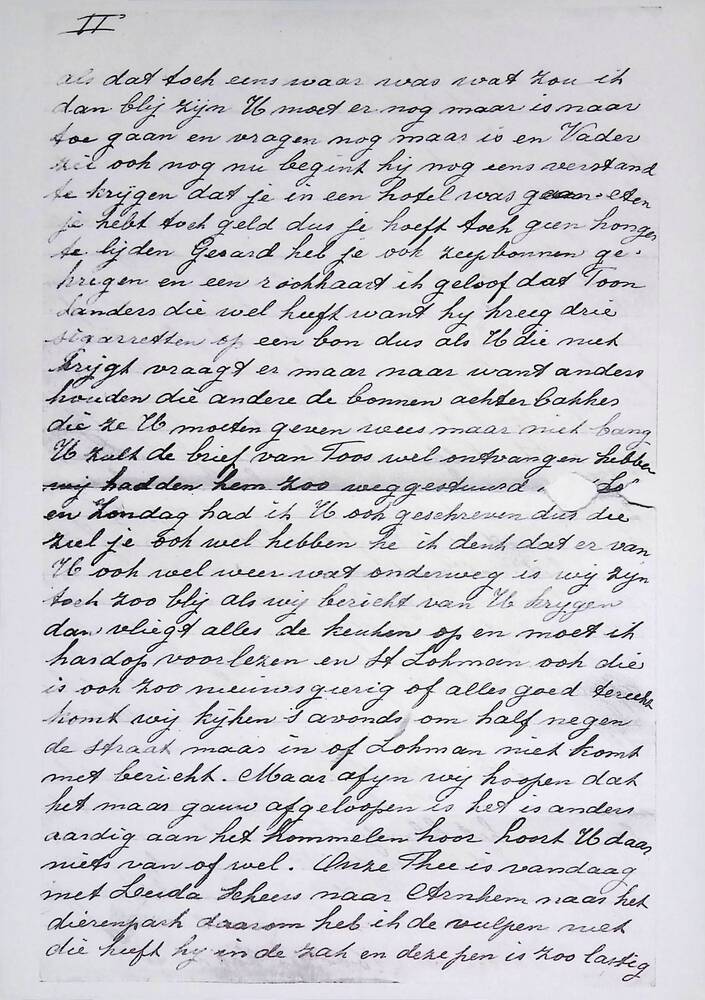 II
als dat toch eens waar was wat zou ik
dan blij zijn U moet er nog maar is naar
toe gaan en vragen nog maar is en Vader
zie ook nog nu begint hij nog eens verstand
te krijgen dat je in een hotel was gaan eten
je hebt toch geld dus je hoeft toch geen honger
te lijden Gerard heb je ook zeepbonnen ge-
kregen en een rookkaart ik geloof dat Toon
Sanders die wel heeft want hij kreeg drie
sigarretten op een bon dus als U die niet
krijgt vraagt er maar naar want anders
houden die andere de bonnen achterbakkes
die ze U moeten geven wees maar niet bang
U zult de brief van Toos wel ontvangen hebben
wij hadden hem zoo weggestuurd
en Zondag had ik U ook geschreven dus die
zul je ook wel hebben he ik denk dat er van
U ook wel weer wat onderweg is wij zijn
toch zoo blij als wij bericht van U krijgen
dan vliegt alles de keuken op en moet ik
hardop voorlezen en St Lohman ook die
is ook zoo nieuwsgierig of alles goed terecht
komt wij kijken 's avonds om half negen
de straat maar in of Lohman niet komt
met bericht. Maar afijn wij hoopen dat
het maar gauw afgeloopen is het is anders
aardig aan het hommelen hoor hoort U daar
niets van of wel. Onze Thee is vandaag
met Leida Scheers naar Arnhem naar het
dierenpark daarom heb ik de vulpen niet
die heeft hij in de zak en deze pen is zoo lastig